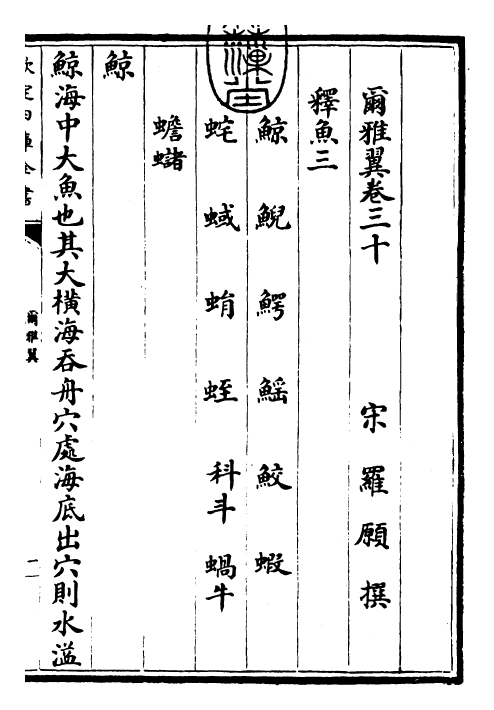 爾雅翼卷三十
宋 羅願 撰
釋魚三
鯨 鯢 鰐 鰩 鮫 蝦
蛇 蜮 蛕 蛭 科斗 蝸牛
蟾蠩
鯨
鯨海中大魚也其大橫海吞舟穴處海底出穴則水溢
欽定四庫全書
爾雅翼